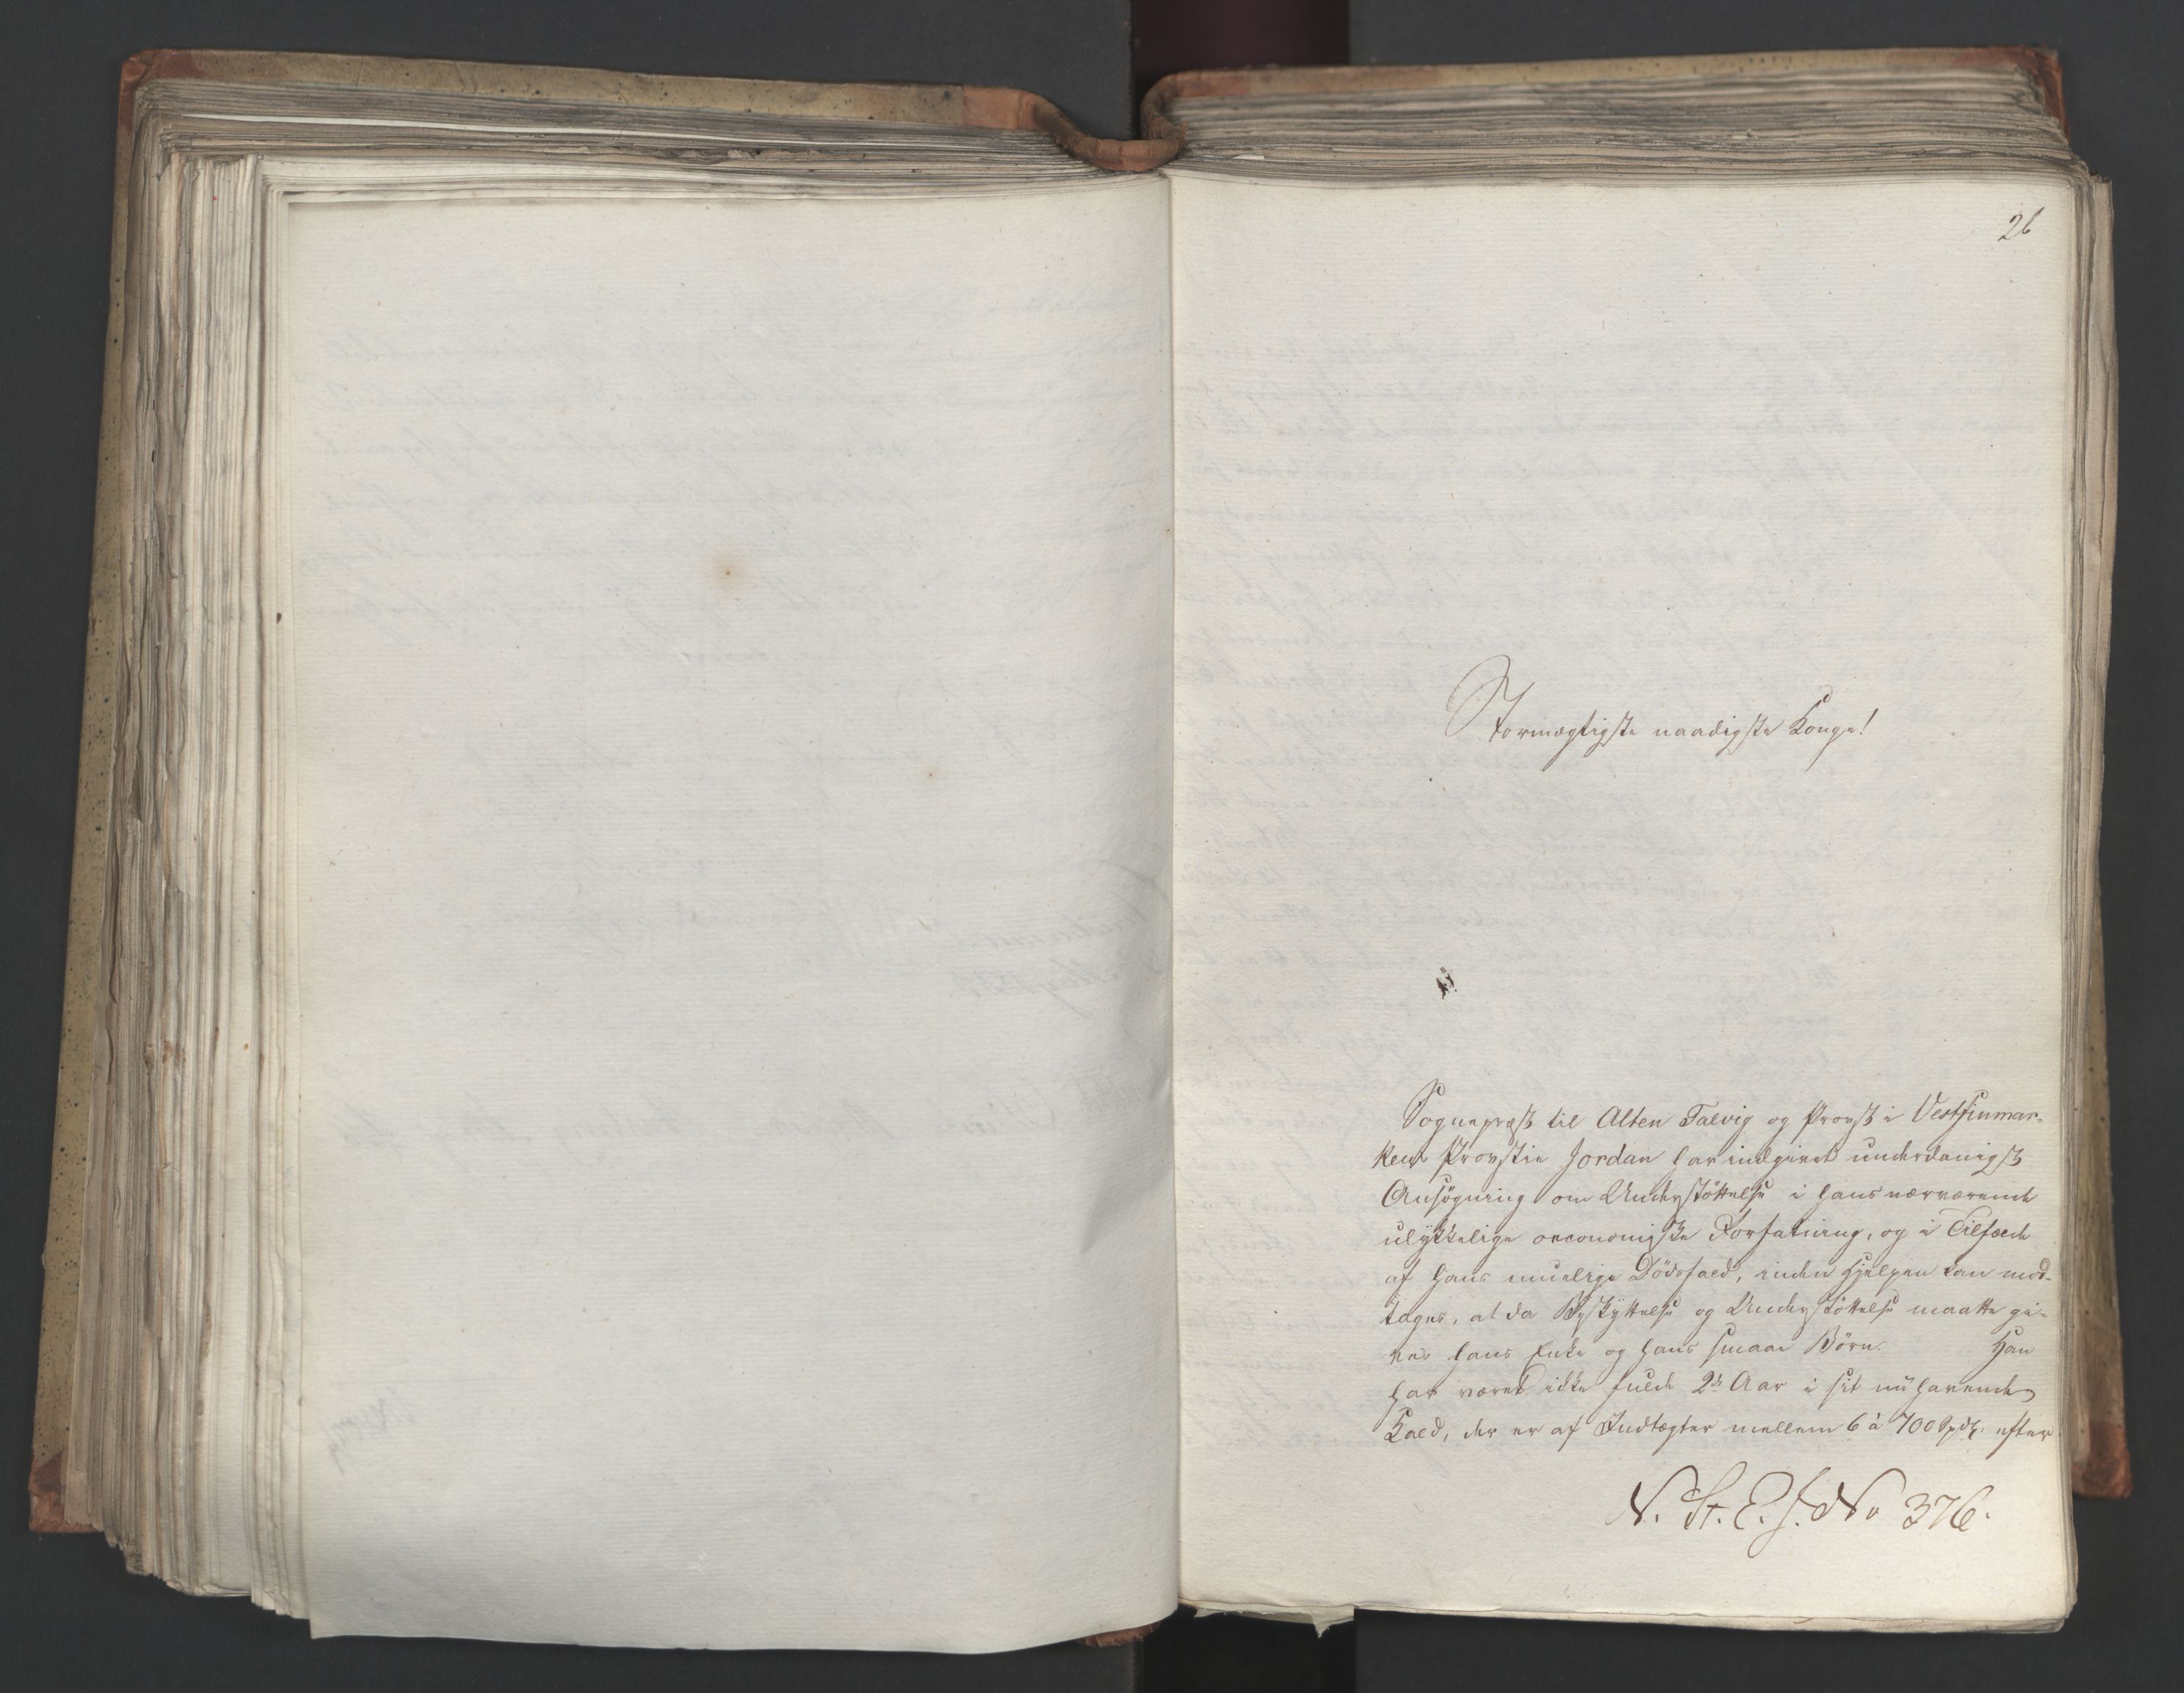 26
Stormægtigste naadigste Konge!
Sognepræst til Alten Talvig og Provst i Vestfinmar-
kens Provstie Jordan har indgivet underdanigst
Ansögning om Understöttelse i hans nærværende
ulykkelige oeconomiske Forfatning, og i Tilfælde
af hans muelige Dödsfald, inden Hjelpen kan mod-
tages, at da Beskyttelse og Understöttelse maatte gi-
ves hans Enke og hans smaae Börn. Han
har været ikke fulde 2de Aar i sit nu havende
Kald, der er af Indtægter mellem 6 à 700 Spdlr. efter
N. St. E. J. No 376.